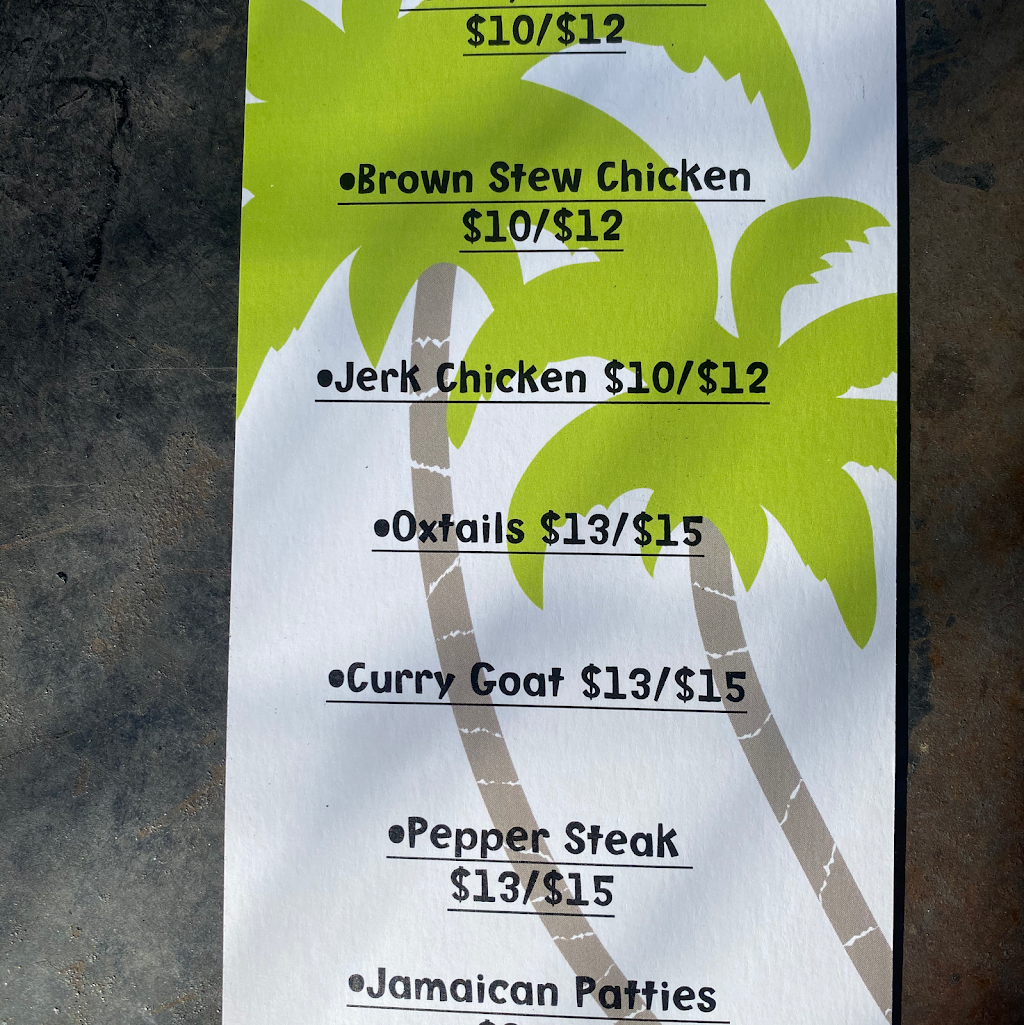 $10/$12
•Brown Stew Chicken
$10/$12
•Jerk Chicken $10/$12
•Oxtails $13/$15
•Curry Goat $13/$15
•Pepper Steak
$13/$15
•Jamaican Patties